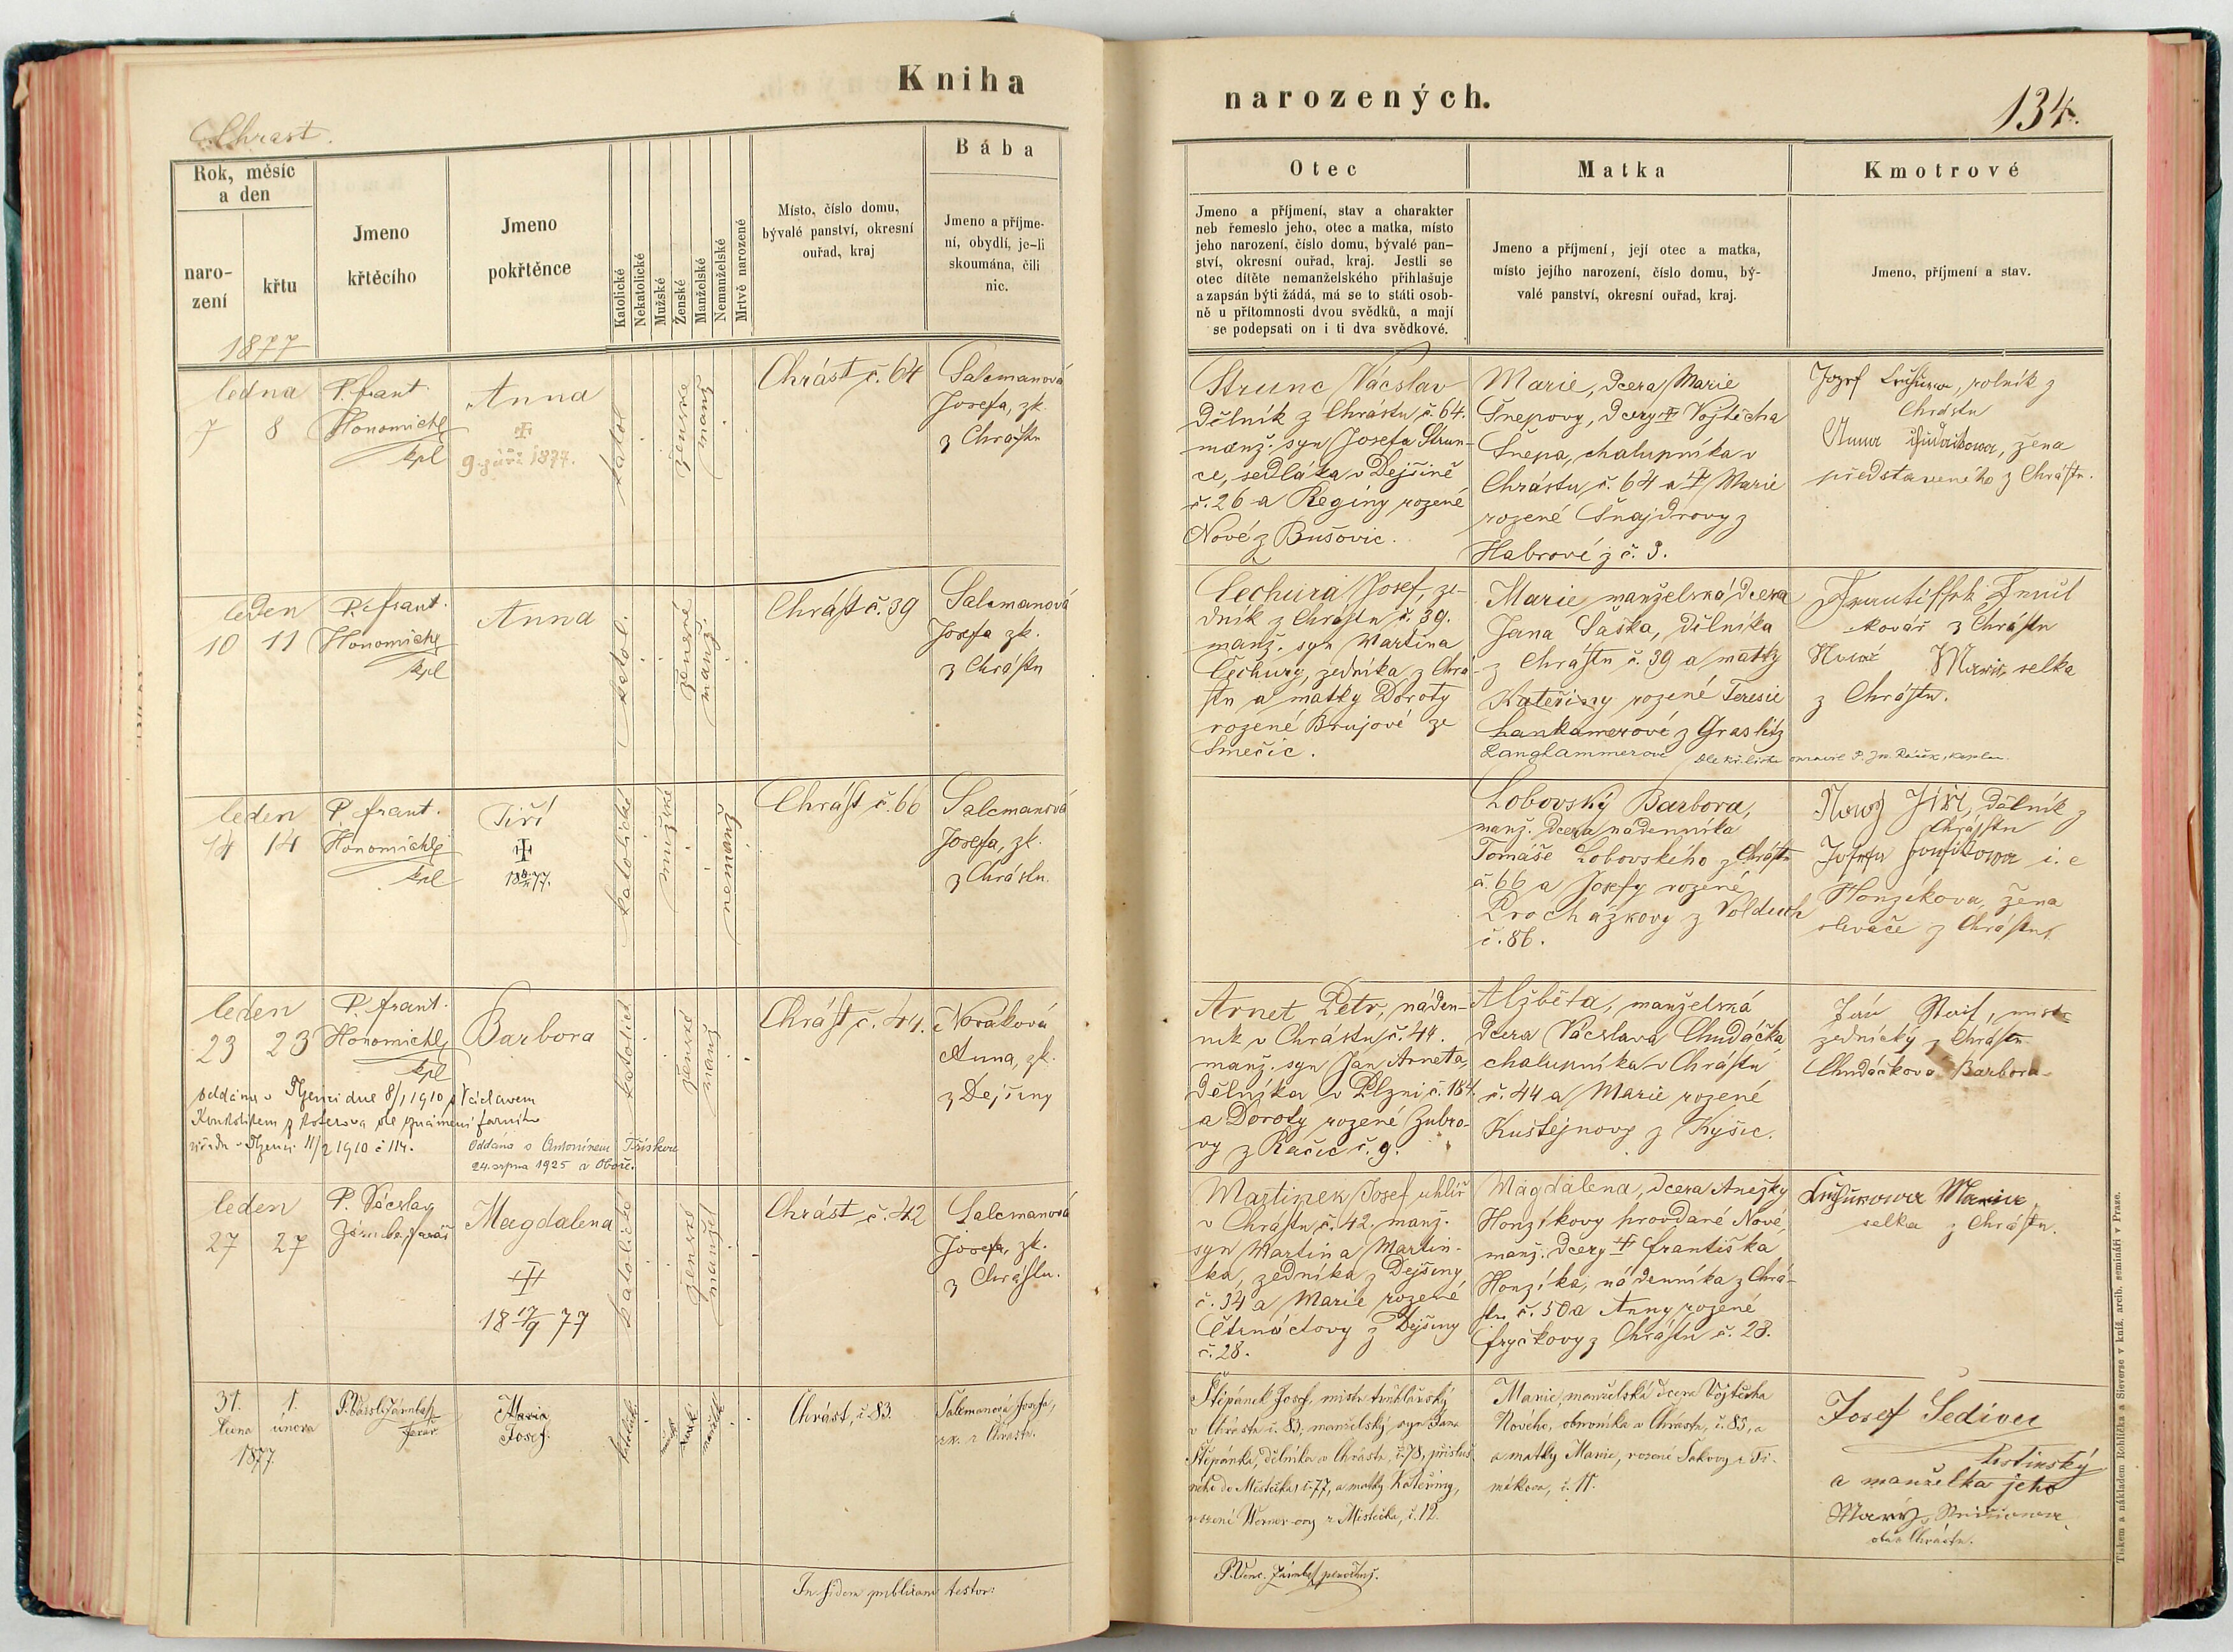 Kniha
narozených.
134.
Chrast.
Rok, měsíc
a den
naro-
zení
křtu
Jmeno
křtěcího
Jmeno
pokřtěnce
Katolické
Nekatolické
Mužské
Ženské
Manželské
Nemanželské
Mrtvě narozené
Místo, číslo domu,
bývalé panství, okresní
ouřad, kraj
Bába
Jmeno a příjme-
ní, obydlí, je-li
skoumána, čili
nic.
Otec
Jmeno a příjmení, stav a charakter
neb řemeslo jeho, otec a matka, místo
jeho narození, číslo domu, bývalé pan-
ství, okresní ouřad, kraj. Jestli se
otec dítěte nemanželského přihlašuje
a zapsán býti žádá, má se to státi osob-
ně u přítomnosti dvou svědků, a mají
se podepsati on i ti dva svědkové.
Matka
Jmeno a příjmení, její otec a matka,
místo jejího narození, číslo domu, bý-
valé panství, okresní ouřad, kraj.
Kmotrové
Jmeno, příjmení a stav.
1877
ledna
7 8
P. frant.
Honomichl
kpl
Anna
9. září 1877.
katol
ženské
manž
Chrást č. 64
Salcmanová
Josefa, zk.
z Chrástu
Strunc Vácslav
dělník z Chrástu č. 64.
manž. syn Josefa Strun-
ce, sedláka v Dejšině
č. 26 a Reginy rozené
Nové z Bušovic.
Marie, dcera Marie
Šnepovy, dcery Vojtěcha
Šnepa, chalupníka v
Chrástu č. 64 a Marie
rozené Šnajdrovy z
Habrové z č. 3.
Jozef, rolník z
Chrástu
Anna, žena
představeného z Chrástu.
leden
10 11
P. frant.
Honomichl
kpl
Anna
katol.
ženské
manž.
Chrást č. 39
Salcmanová
Josefa zk.
z Chrástu
Čechura Josef, ze-
dník z Chrástu č. 39.
manž. syn Martina
Čechury, zedníka z Chrá-
stu a matky Doroty
rozené Brujové ze
Smečic.
Marie manželská dcera
Jana Saska, dělníka
z Chrástu č. 39 a matky
Kateřiny rozené Teresie
Lankamerové z Graslitz
Langhammerové dle kř. listu opravil P. Jos. kaplan.
kovář z Chrástu
Marie selka
z Chrástu.
leden
14 14
P. frant.
Honomichl
kpl
Jiří
katolické
mužské
nemanž
Chrást č. 66
Salcmanová
Josefa, zk.
z Chrástu.
Lobovský Barbora,
manž. dcera nádenníka
Tomáše Lobovského z Chrástu
č. 66 a Josefy rozené
Procházkovy z Volduch
č. 86.
Nový Jiří, dělník z
Chrástu
Josefa i. e
Honzíkova, žena
slevače z Chrástu.
leden
23 23
P. frant.
Honomichl
kpl
Barbora
katolick
ženské
manž
Chrást č. 44.
Nováková
Anna, zk.
z Dejšiny
oddána v Plzenci dne 8/1 1910 s Václavem
z Koterova dle oznámení farního
úřadu v Plzenci 11/2 1910 č 114.
Oddána s Antonínem Třískou
24. srpna 1925 v Oboře.
Arnet Petr, náden-
ník v Chrástu č. 44.
manž. syn Jan Arneta,
dělníka v Plzni č. 184
a Doroty rozené Zubro-
vy z Račic č. 9.
Alžběta, manželská
dcera Vácslava Chudáčka,
chalupníka v Chrástu
č. 44 a Marie rozené
Kuštejnovy z Kyšic.
zednický z Chrástu
Chudáčková Barbora
leden
27 27
P. Vácslav
Járnbe, farář
Magdalena
18 17/9 77
katolické
ženské
manžel
Chrást č. 42
Salcmanová
Josefa, zk.
z Chrástu.
Martinek Josef uhlíř
v Chrástu č. 42. manž.
syn Martina Martin-
ka, zedníka z Dejšiny
č. 34 a Marie rozené
Čtrnáctovy z Dejšiny
č. 28.
Magdalena, dcera Anežky
Honzíkovy provdané Nové,
manž. dcery františka
Honzíka, nádenníka z Chrá-
stu č. 50 a Anny rozené
fryčkovy z Chrástu č. 28.
Marie,
selka z Chrástu.
31. 1.
ledna února
1877.
farář
Maria
Josef.
Chrást, č 83.
Salcmanová Josefa,
zk. z Chrástu.
Štěpánek Josef, mistr truhlářský
v Chrástu č. 83, manželský syn Jana
Štěpánka, dělníka v Chrástu, č. 78, přísluš-
ného do Městečka, č. 77, a matky Kateřiny,
rozené Werner-ovy z Městečka, č. 12.
Marie, manželská dcera Vojtěcha
Nového, obuvníka v Chrástu, č. 83, a
a matky Marie, rozené
č. 11.
Josef Sedivec
a manželka jeho
oba z Chrástu.
In fidem publicam testor: